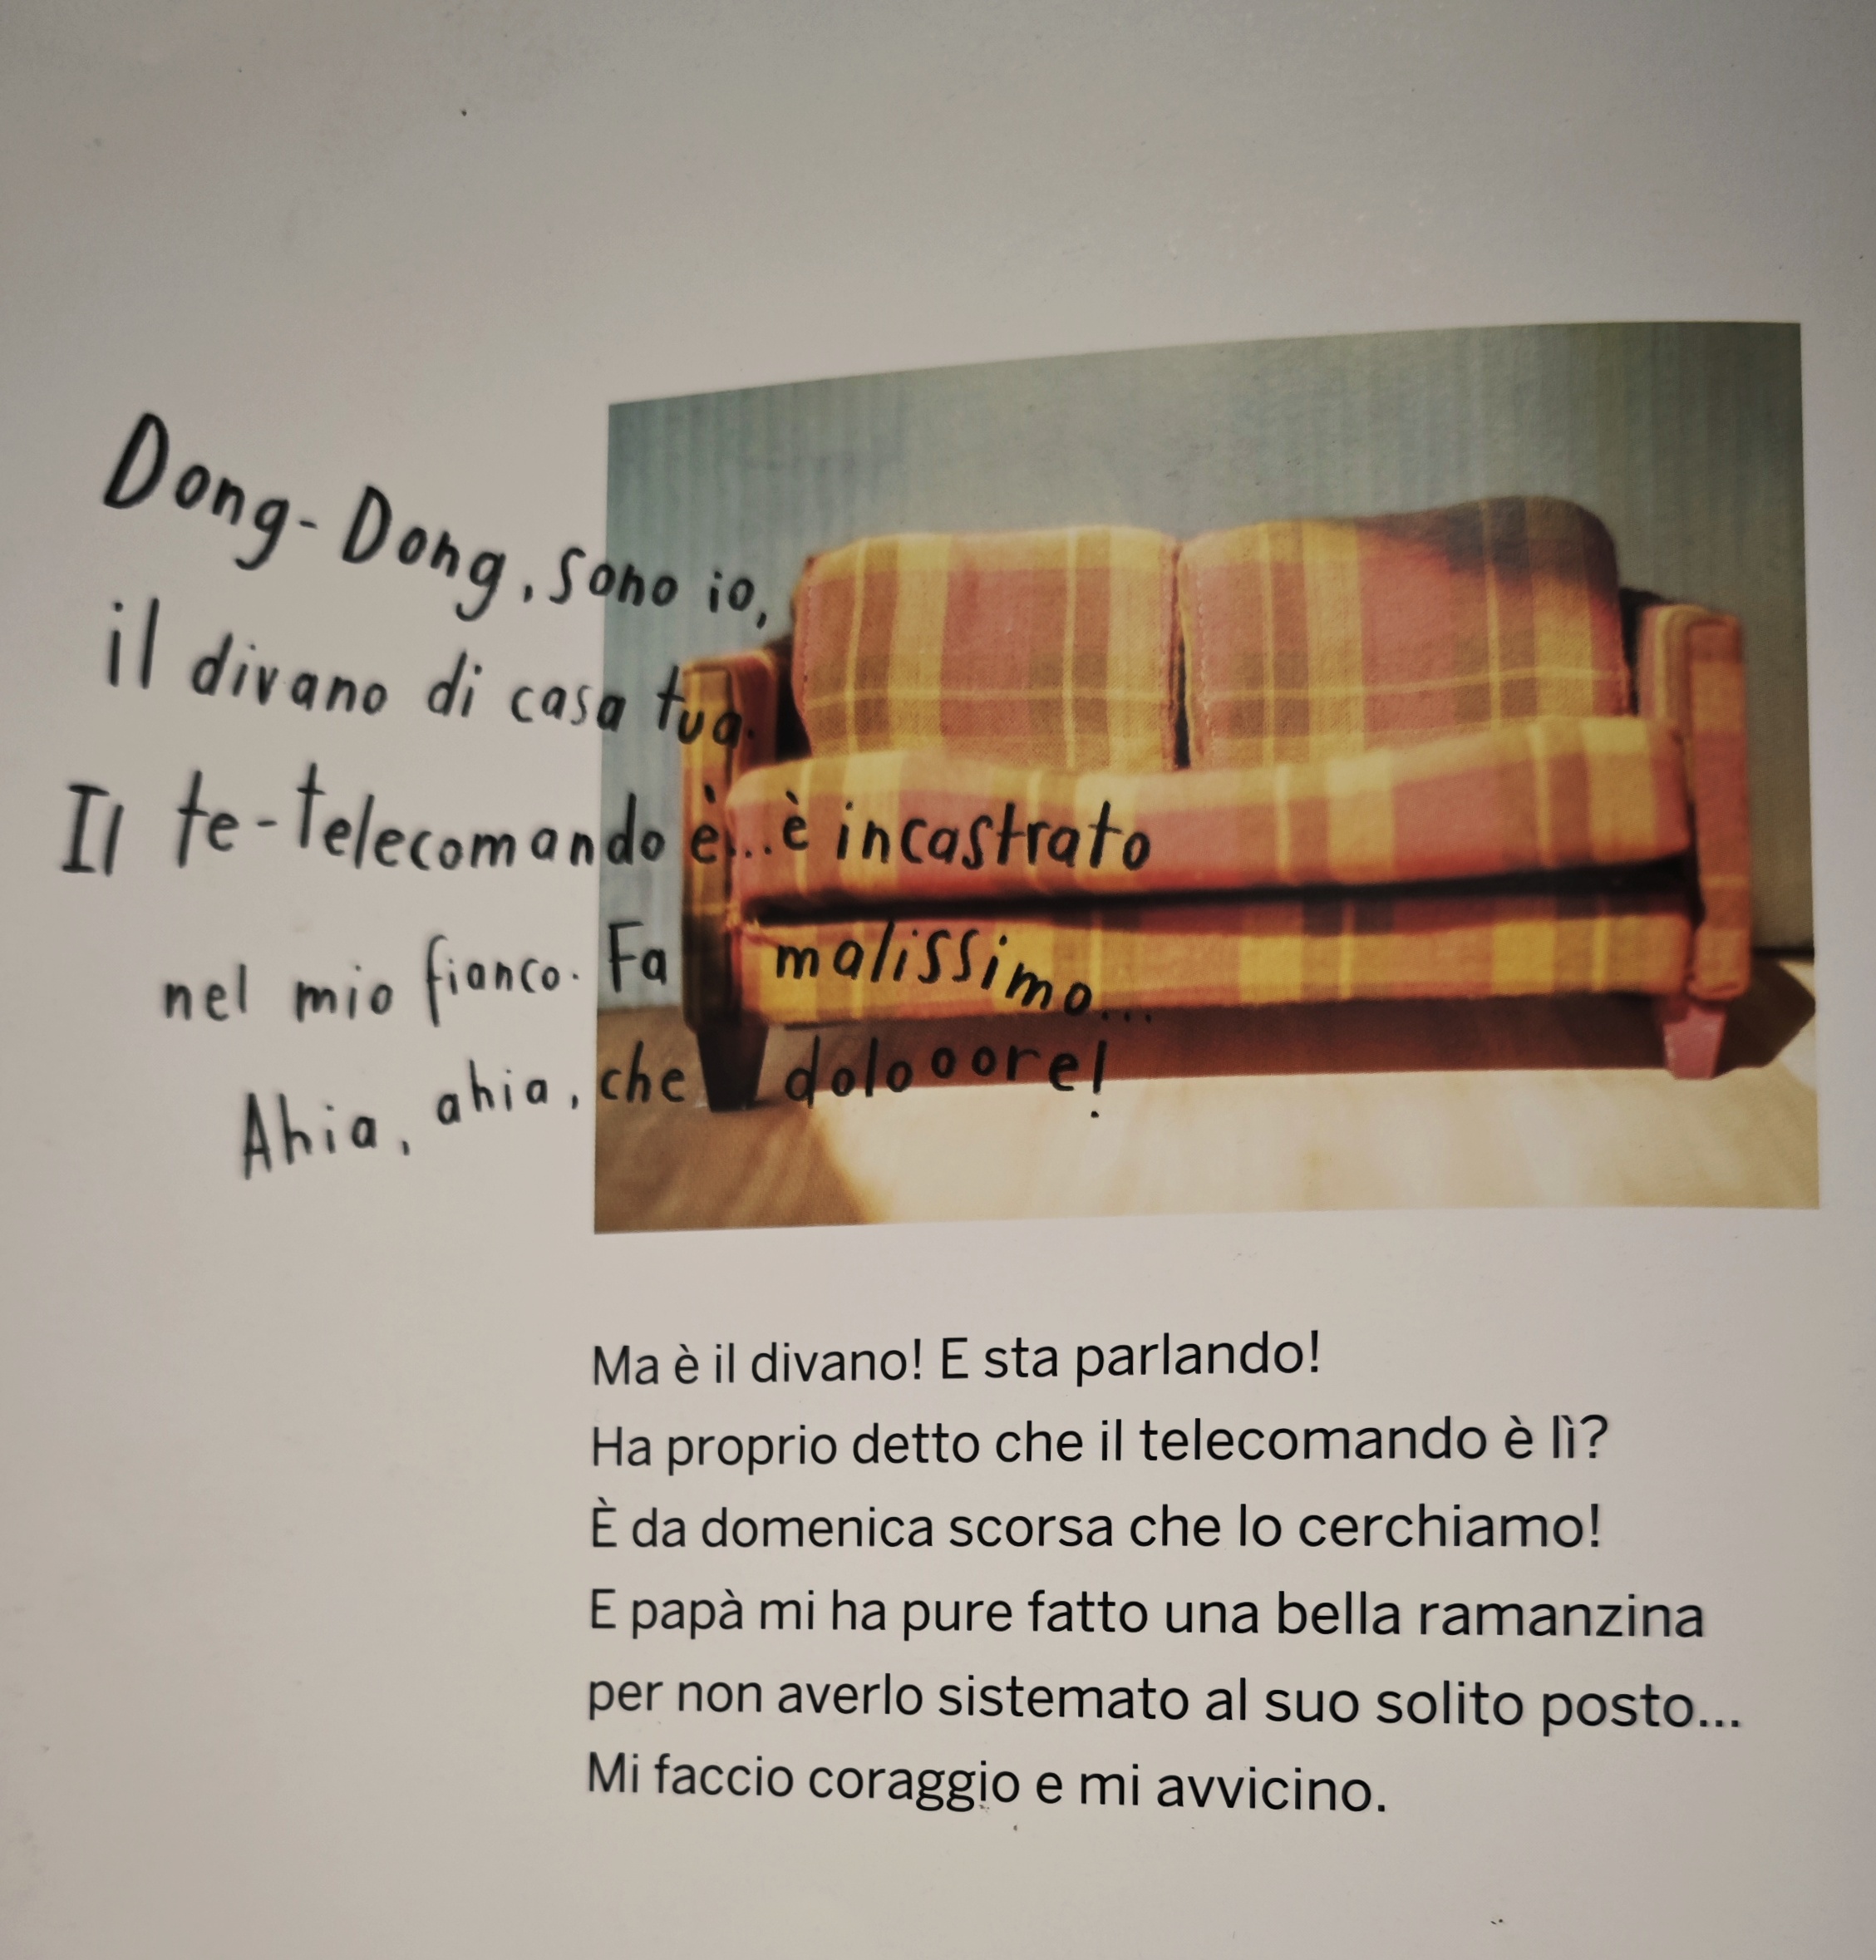 Dong-Dong, sono io,
il divano di casa tua.
Il te-telecomando è...è incastrato
nel mio fianco. Fa malissimo...
Ahia, ahia, che doloooore!
Ma è il divano! E sta parlando!
Ha proprio detto che il telecomando è lì?
È da domenica scorsa che lo cerchiamo!
E papà mi ha pure fatto una bella ramanzina
per non averlo sistemato al suo solito posto...
Mi faccio coraggio e mi avvicino.